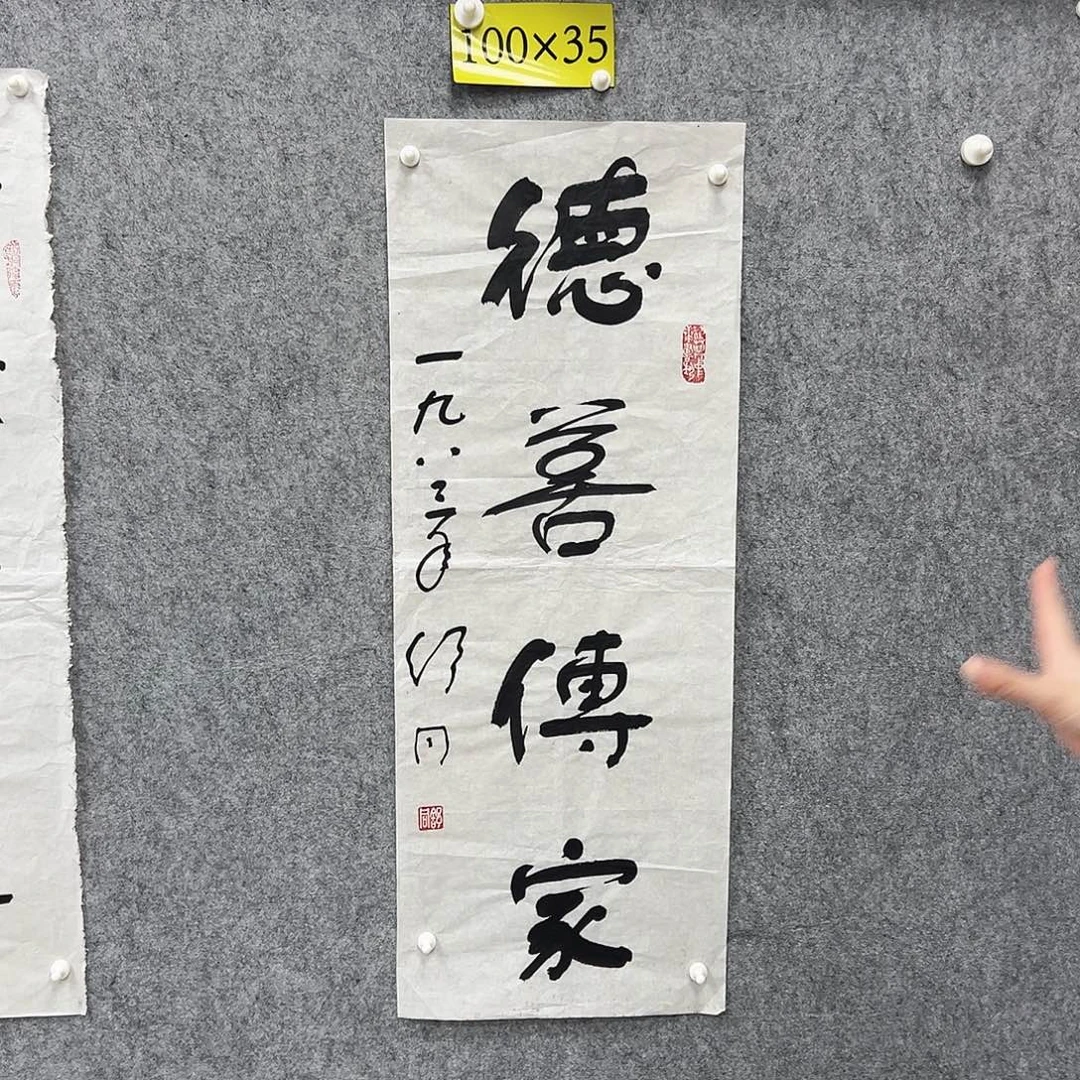 100×35
德善傳家
一九八三年 舒同